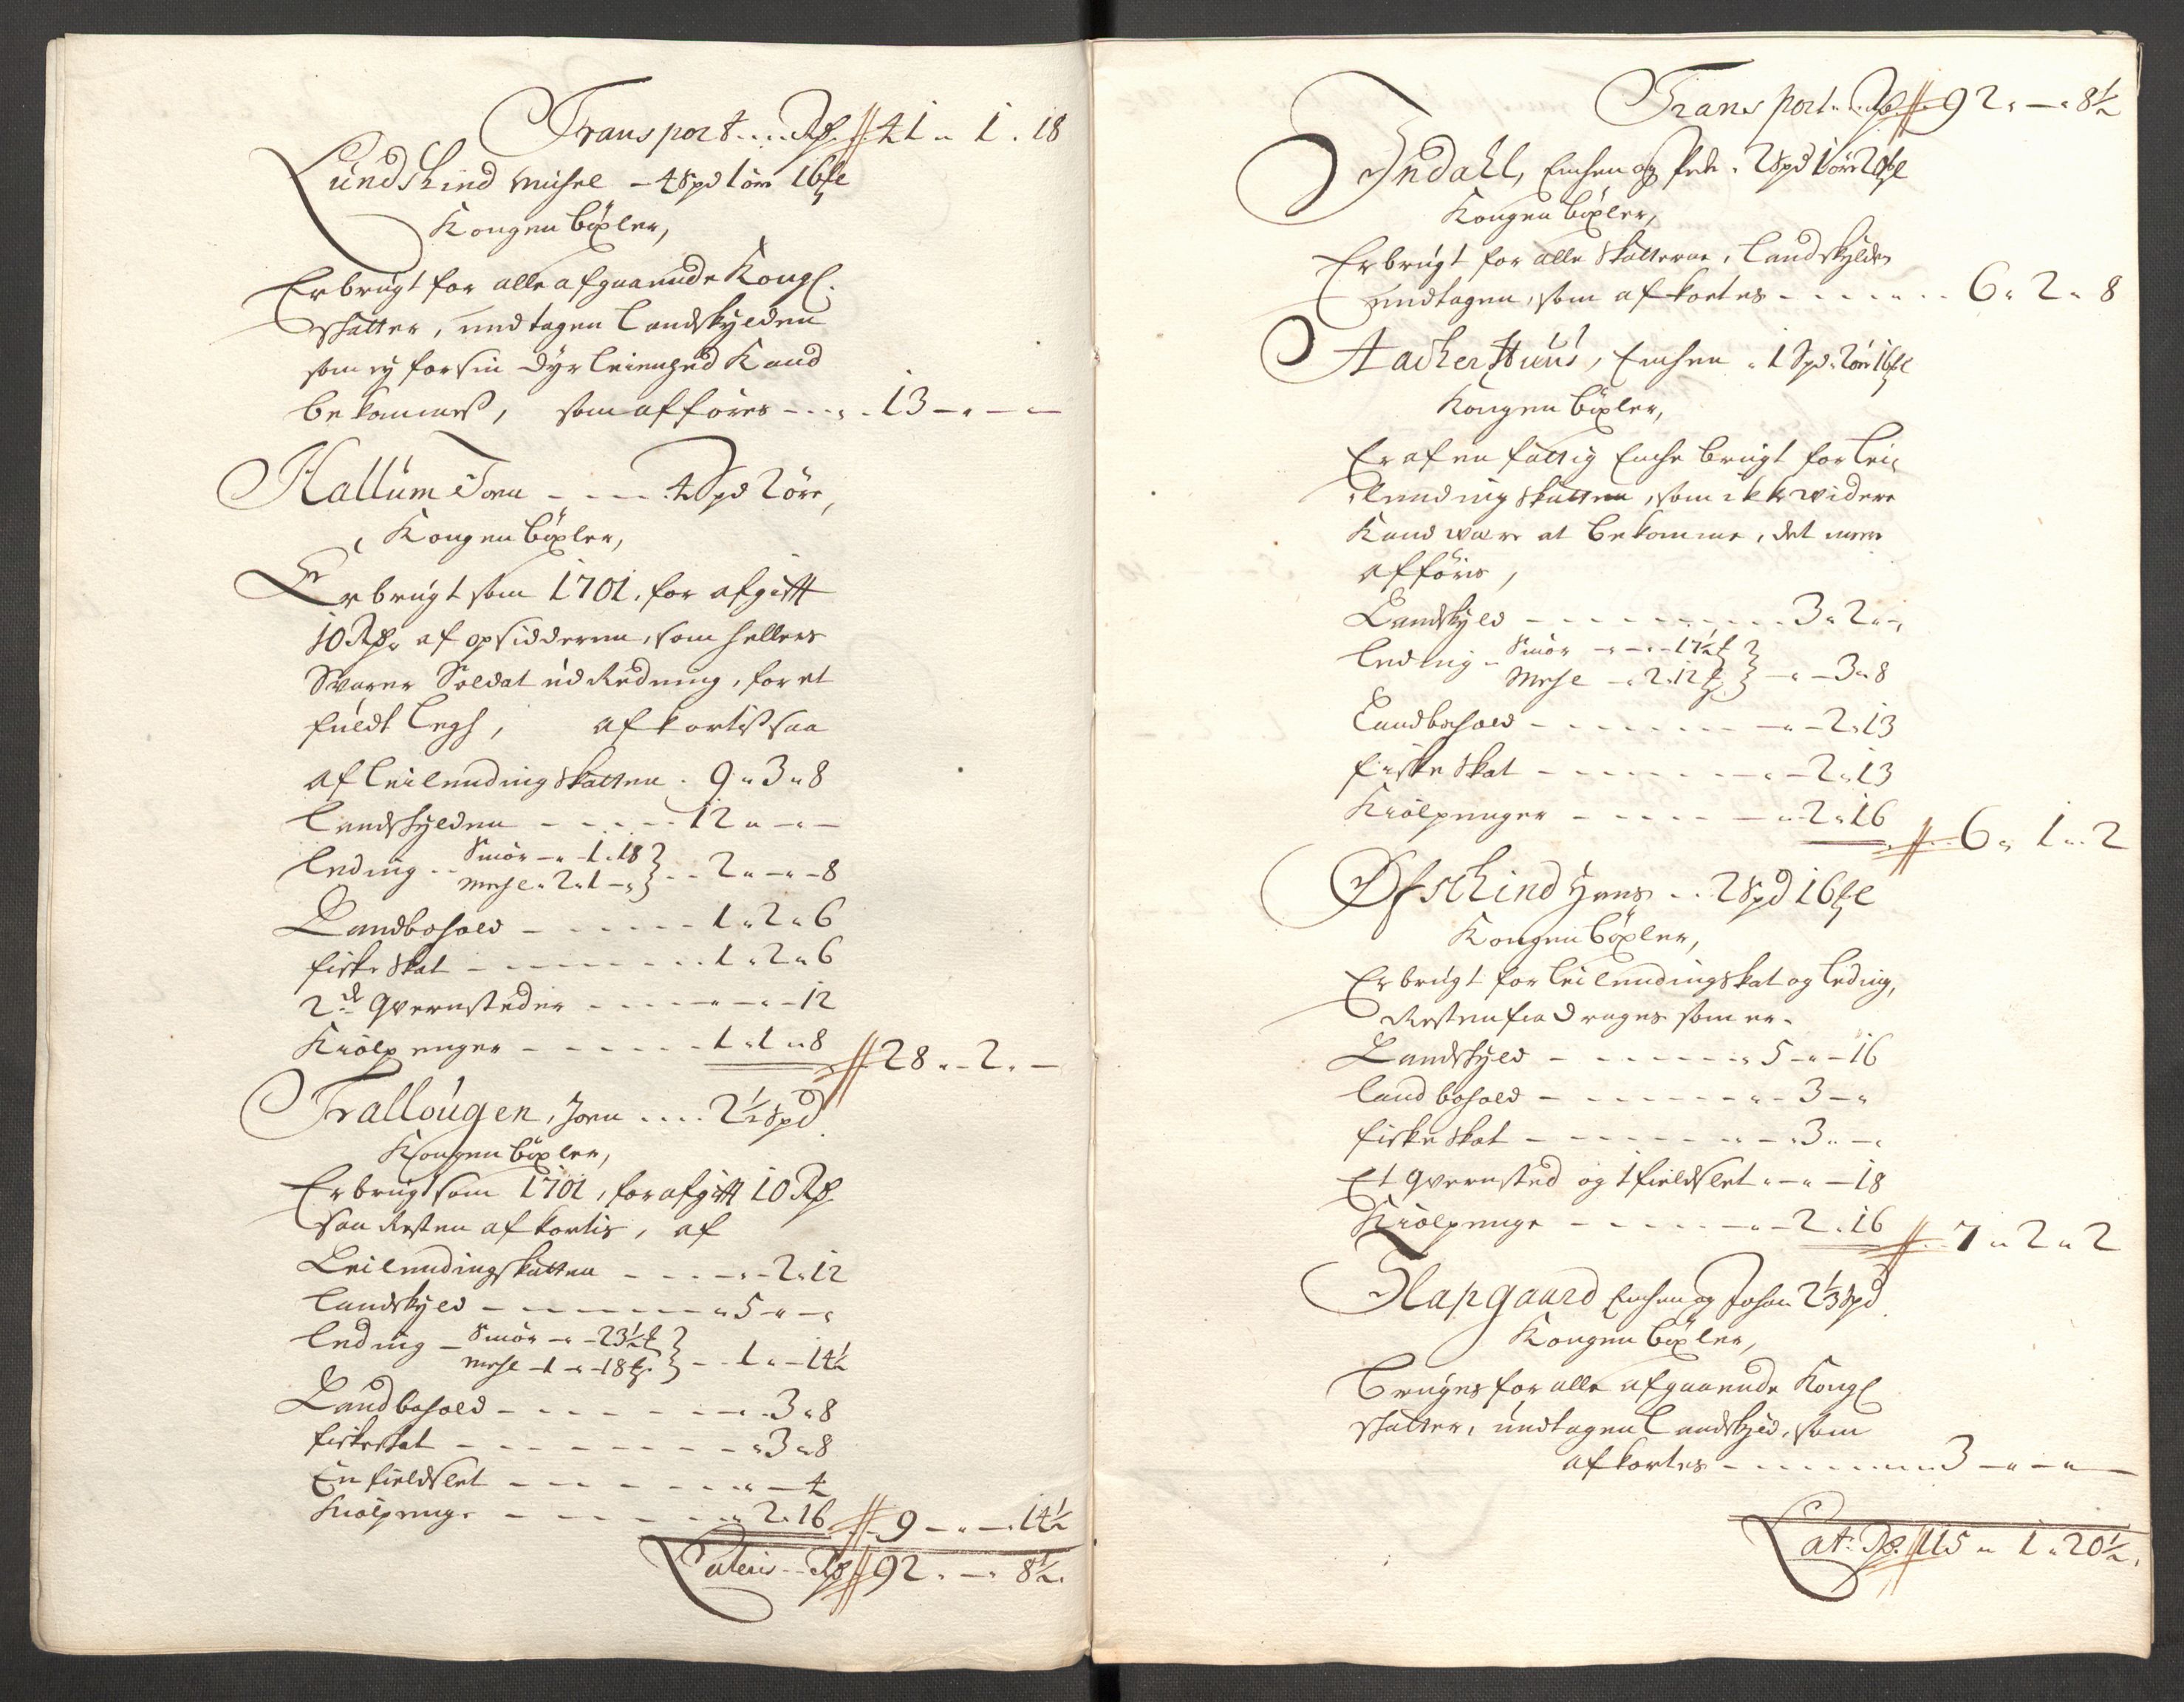 Transport . . . . Rd. 41 „ 1 . 18
Lundskind Michel – 4 Spd 1 øre 16 ſe
Kongen böxler,
Er brugt for alle afgaaende Kongl.
skatter, undtagen Landskylden
som ej for sin dyr leienhed Kand
bekommes, som afføres – . . „ . 13 – „ – –
Hallum Joen – – – – 4 Spd 2 øre,
Kongen böxler,
Er brugt som 1701, for afgifft
10 Rd. af opsidderen, som hellers
Svarer Soldat ud Redning, for et
fuldt Legh, afkortis saa
af leilending skatten . 9 „ 3 „ 8
Landskylden – – – – – 12 „ – „ –
Leding . . Smör – „ – 1 . 18
Mehl „ 2 „ 1 – „ } . . 2 „ – „ – 8
Landbohold – – – – – – 1 „ 2 „ 6
fiske skat – – – – – – – . 1 „ 2 „ 6
2de Qvernsteder – – – – „ – „ – 12
Kiölpenger – – – – – – 1 „ 1 „ 8 28 „ – 2 „ –
Trallougen, Joen . . . . 2½ Spd
Kongen böxler,
Er brugt som 1701, for afgifft 10 Rd.
saa Resten afkortis, af
Leilendingskatten – – – – „ – 2 „ 12
Landskyld – – – – – – – „ 5 – „ – „
Leding – Smör – „ – 23½
Mehl – 1 – „ – 18 } – . 1 „ – 14½
Landbohold – – – – – – – „ . 3 „ 8
fiskeskat – – – – – – – – „ 3 „ 8
En fieldslet – – – – – – „ „ – 4
Kiölpenge – – – – – – „ 2 „ 16 9 – „ – . 14½
Lateris . . Rd 92 „ – „ 8½.
Transport . . Rd 92 „ – „ 8½
Indahl, Enchen og Peder . 2 Spd 1 øre 20 ſe
Kongen böxler,
Er brugt for alle Skatterne, Landskylden
undtagen, som afkortes – – – – – – . . 6 „ 2 „ 8
Aackerhuus, Enchen „ 1 Spd „ 2 øre 16 ſe
Kongen böxler,
Er af en fattig Enche brugt for Lei-
lending skatten, som ikke widere
Kand være at bekomme, det mere
afføris,
Landskyld – – – – – – – – – . 3 „ 2 „ – „
Leding – Smör – „ – „ – 17½
Mehl – „ 2 „ 12 } – „ – 3 „ 8
Landbohold – – – – – – – – – „ – 2 „ 13
fiske skat – – – – – – – – „ – 2 „ 13
Kiölpenger – – – – – – „ – 2 „ 16 6 „ 1 „ 2
Øfschind Hans . . 2 Spd 16 ſe
Kongen böxler,
Er brugt for leilendingskat og Leding,
Resten fradrages som er.
Landskyld – – – – – – – „ 5 – „ – 16
Landbohold – – – – – – – „ – 3 – „
fiske skat – – – – – – – „ – . 3 „ – „
Et qvernsted og 1 fieldslet „ – „ – 18
Kiölpenge – – – – – – – „ – 2 „ 16 7 „ 2 „ 2
Slapgaard Enchen og Johan 2⅓ Spd
Kongen böxler,
Bruges for alle afgaaende Kongl
skatter, undtagen Landskyld, som
afkortes – – – – – – – „ 3 – „ – „ –
Lat: Rd. 115 „ 1 „ 20½.